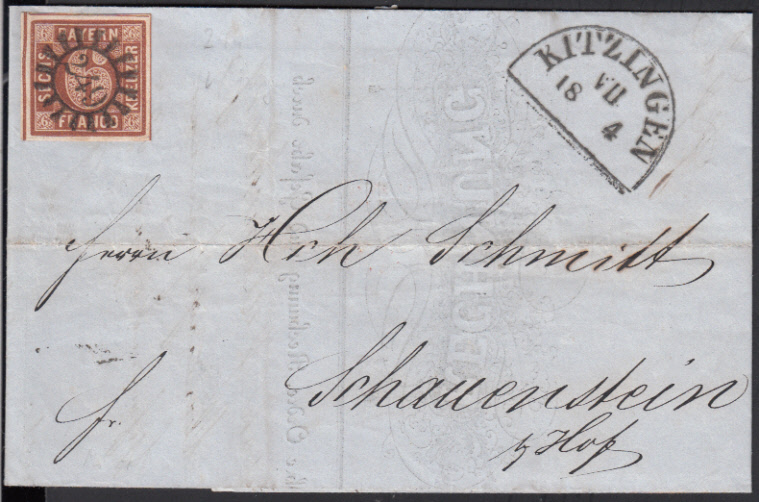 BAYERN
SECHS
6
KREUZER
FRANCO
KITZINGEN
VII.
18 4
Herrn Hch Schmitt
fr.
Schauenstein
b/ Hof
RECHNUNG